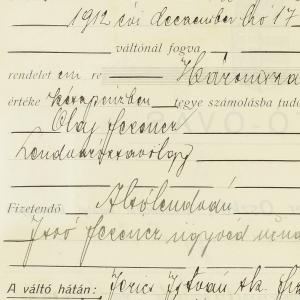 1912 évi december hó 17
váltónál fogva
rendelet em re Háromszá
értéke készpénzben tegye számolásba tudó
Olaj Ferencz
Lendvavásárhely
Fizetendő Alsólendván
Joó Ferencz ügyvéd
A váltó hátán: István sk.